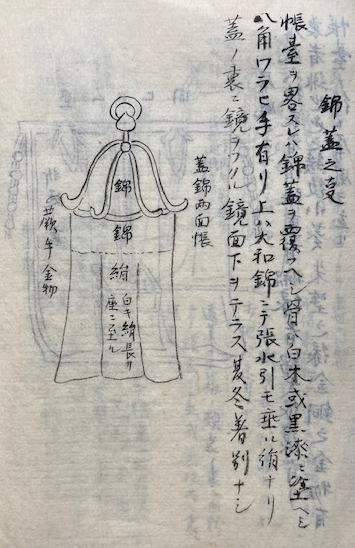 錦蓋之叓
帳臺ヲ畧スレハ錦蓋ヲ覆フヘシ骨白木或黒漆ニ塗ヘシ
八角ワラヒ手有リ上ハ大和錦ニテ張水引モ垂ハ絹ナリ
蓋ノ裏ニ鏡ヲツクル鏡面下ヲテラス夏冬着別ナシ
蓋錦両面帳
錦
錦
絹
白キ絹長サ
座ニ至ル
蕨手金物